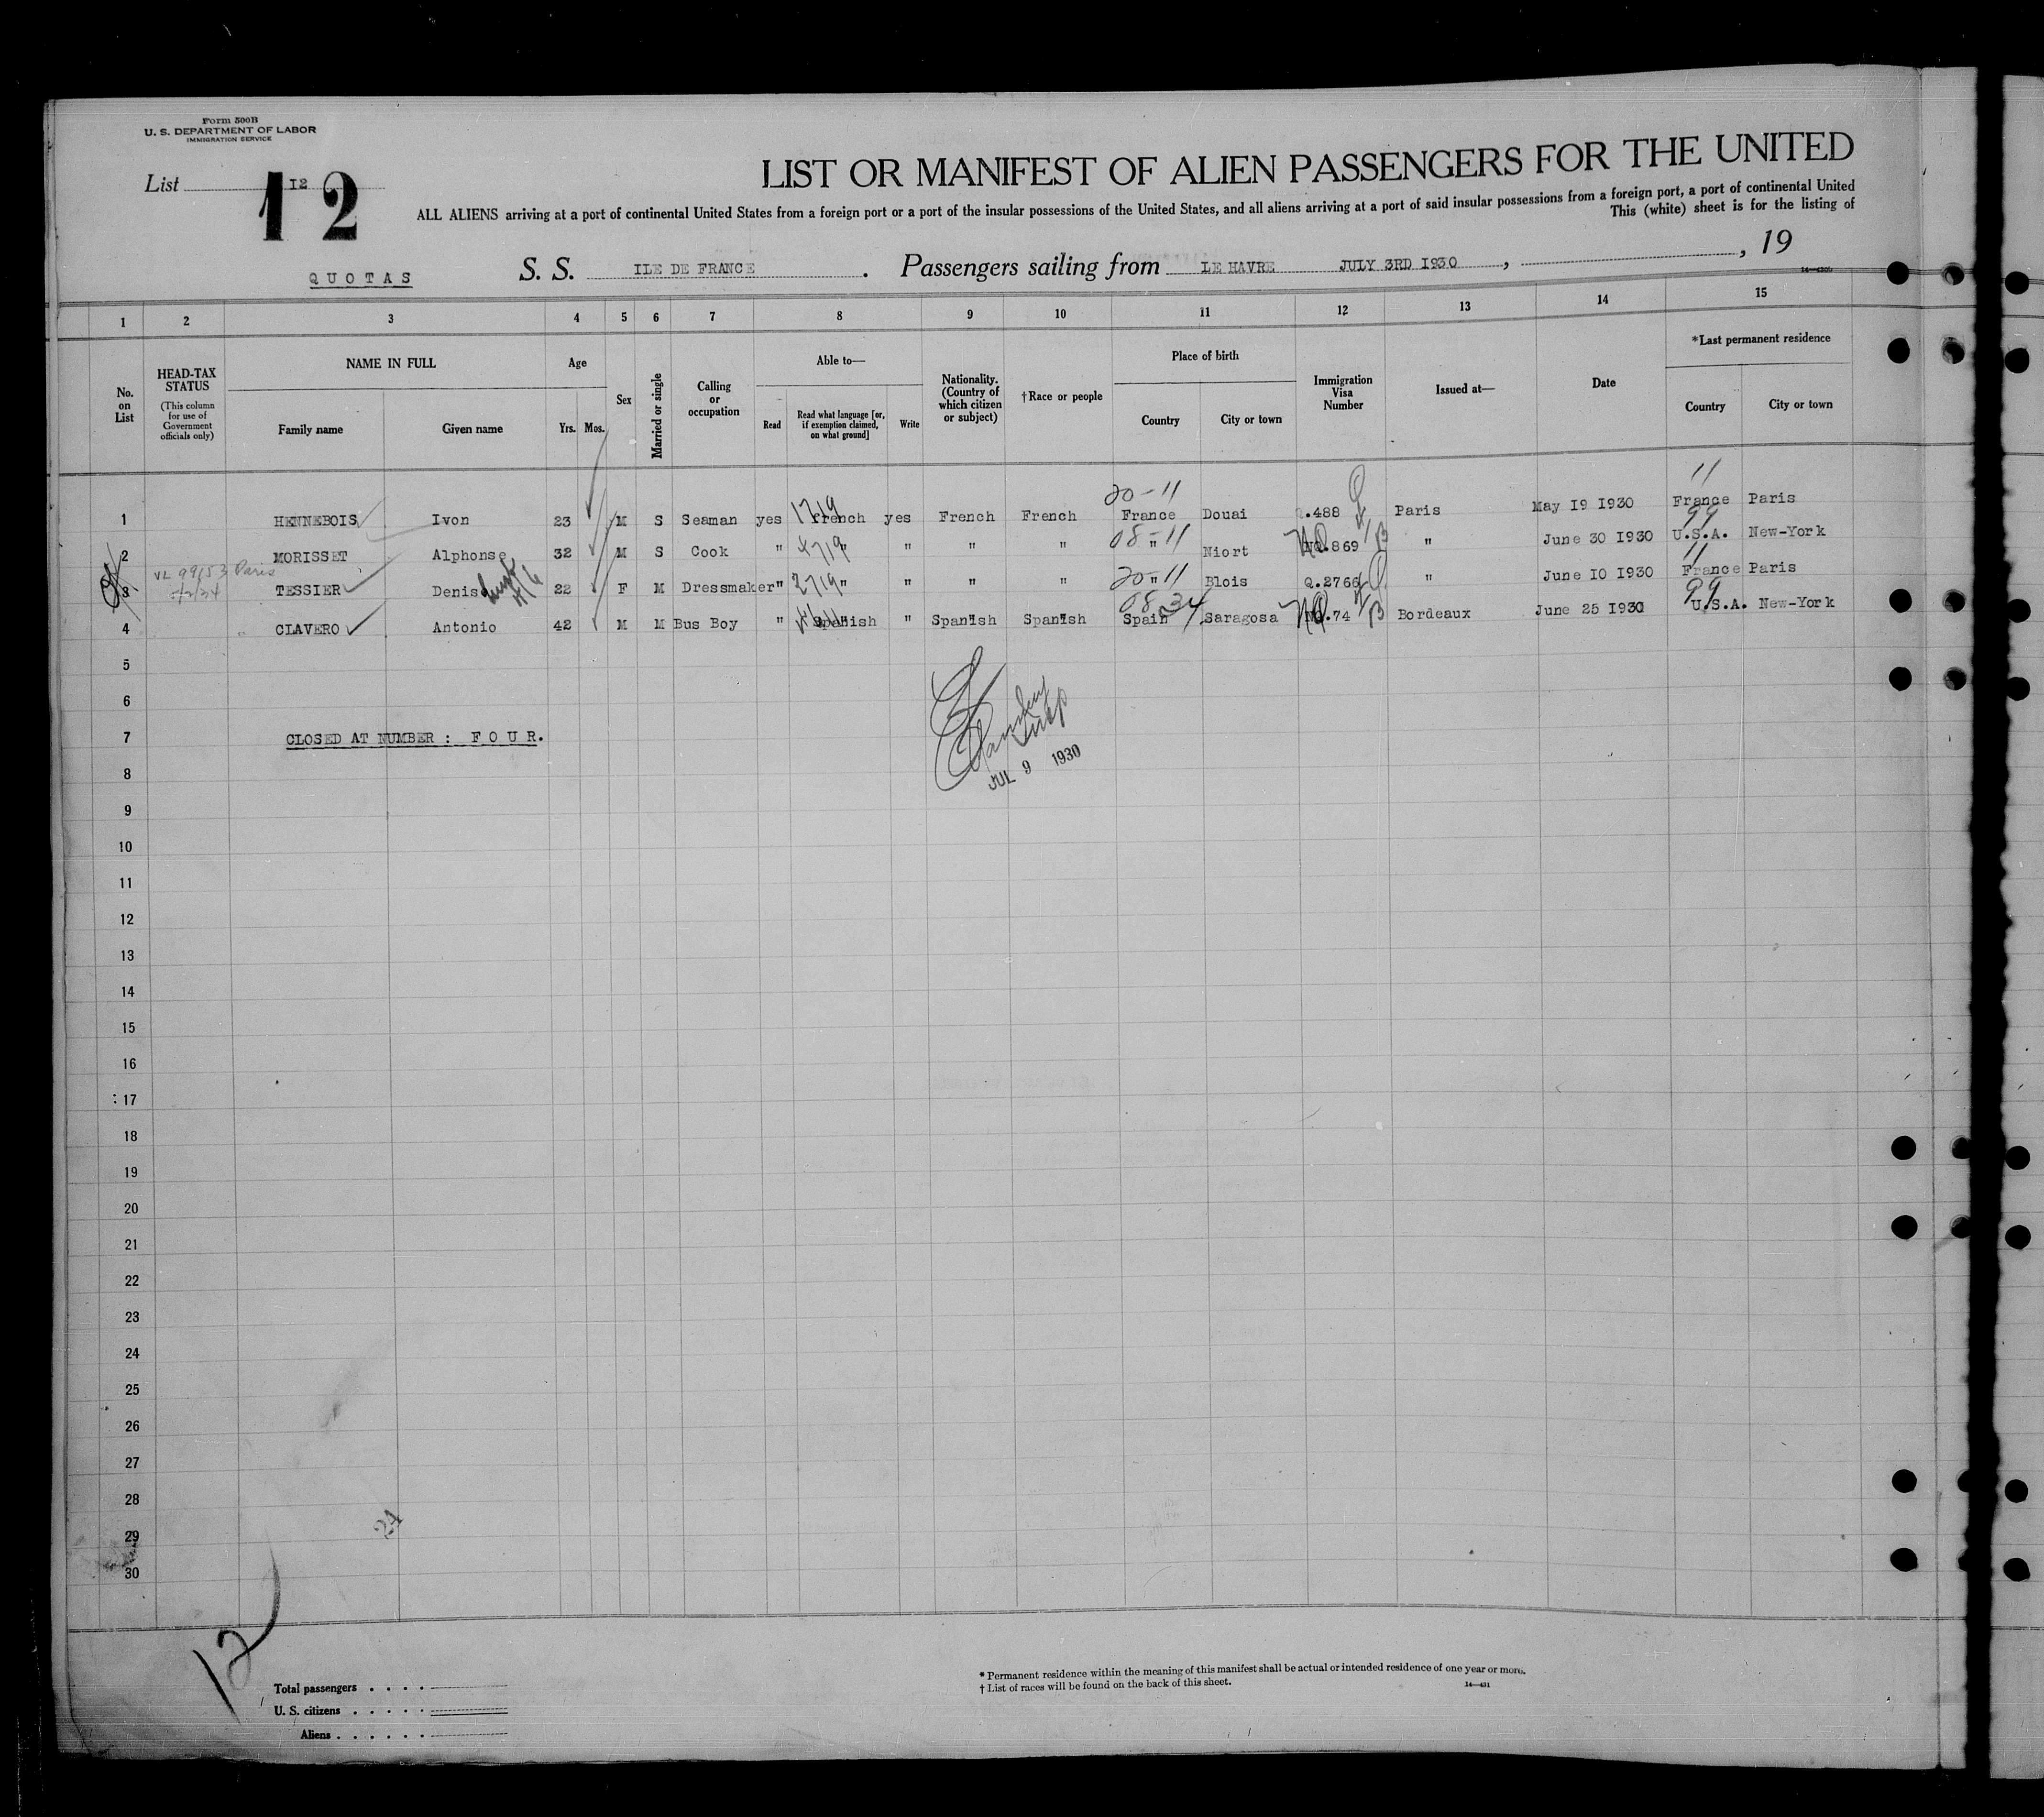 Form 500B
U. S. DEPARTMENT OF LABOR
IMMIGRATION SERVICE
List I2
12
LIST OR MANIFEST OF ALIEN PASSENGERS FOR THE UNITED
ALL ALIENS arriving at a port of continental United States from a foreign port or a port of the insular possessions of the United States, and all aliens arriving at a port of said insular possessions from a foreign port, a port of continental United
This (white) sheet is for the listing of
QUOTAS S. S. ILE DE FRANCE . Passengers sailing from LE HAVRE JULY 3RD I930 , , 19
1 2 3 4 5 6 7 8 9 10 11 12 13 14 15
No. on List
HEAD-TAX STATUS (This column for use of Government officials only)
NAME IN FULL
Family name Given name
Age
Yrs. Mos.
Sex
Married or single
Calling or occupation
Able to—
Read Read what language [or, if exemption claimed, on what ground] Write
Nationality. (Country of which citizen or subject)
†Race or people
Place of birth
Country City or town
Immigration Visa Number
Issued at—
Date
*Last permanent residence
Country City or town
20-11 11
1 HENNEBOIS Ivon 23 M S Seaman yes French yes French French France Douai .488 Paris May 19 I930 France Paris
08-11 99
2 MORISSET Alphonse 32 M S Cook " " " " " " Niort 869 " June 30 I930 U.S.A. New-York
VL 99153 Paris 20-11 11
3 TESSIER Denise 22 F M Dressmaker " " " " " " Blois Q.2766 " June I0 I930 France Paris
08 34 99
4 CLAVERO Antonio 42 M M Bus Boy " Spanish " Spanish Spanish Spain Saragosa 74 Bordeaux June 25 I930 U.S.A. New-York
5
6
7 CLOSED AT NUMBER : F O U R.
JUL 9 1930
8
9
10
11
12
13
14
15
16
17
18
19
20
21
22
23
24
25
26
27
28
24
29
30
12
Total passengers . . . .
U. S. citizens . . . . .
Aliens . . . . . .
* Permanent residence within the meaning of this manifest shall be actual or intended residence of one year or more.
† List of races will be found on the back of this sheet.
14—431